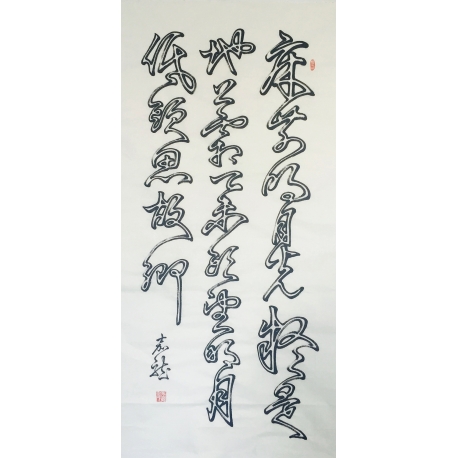 床前明月光疑是
地上霜舉頭望明月
低頭思故鄉